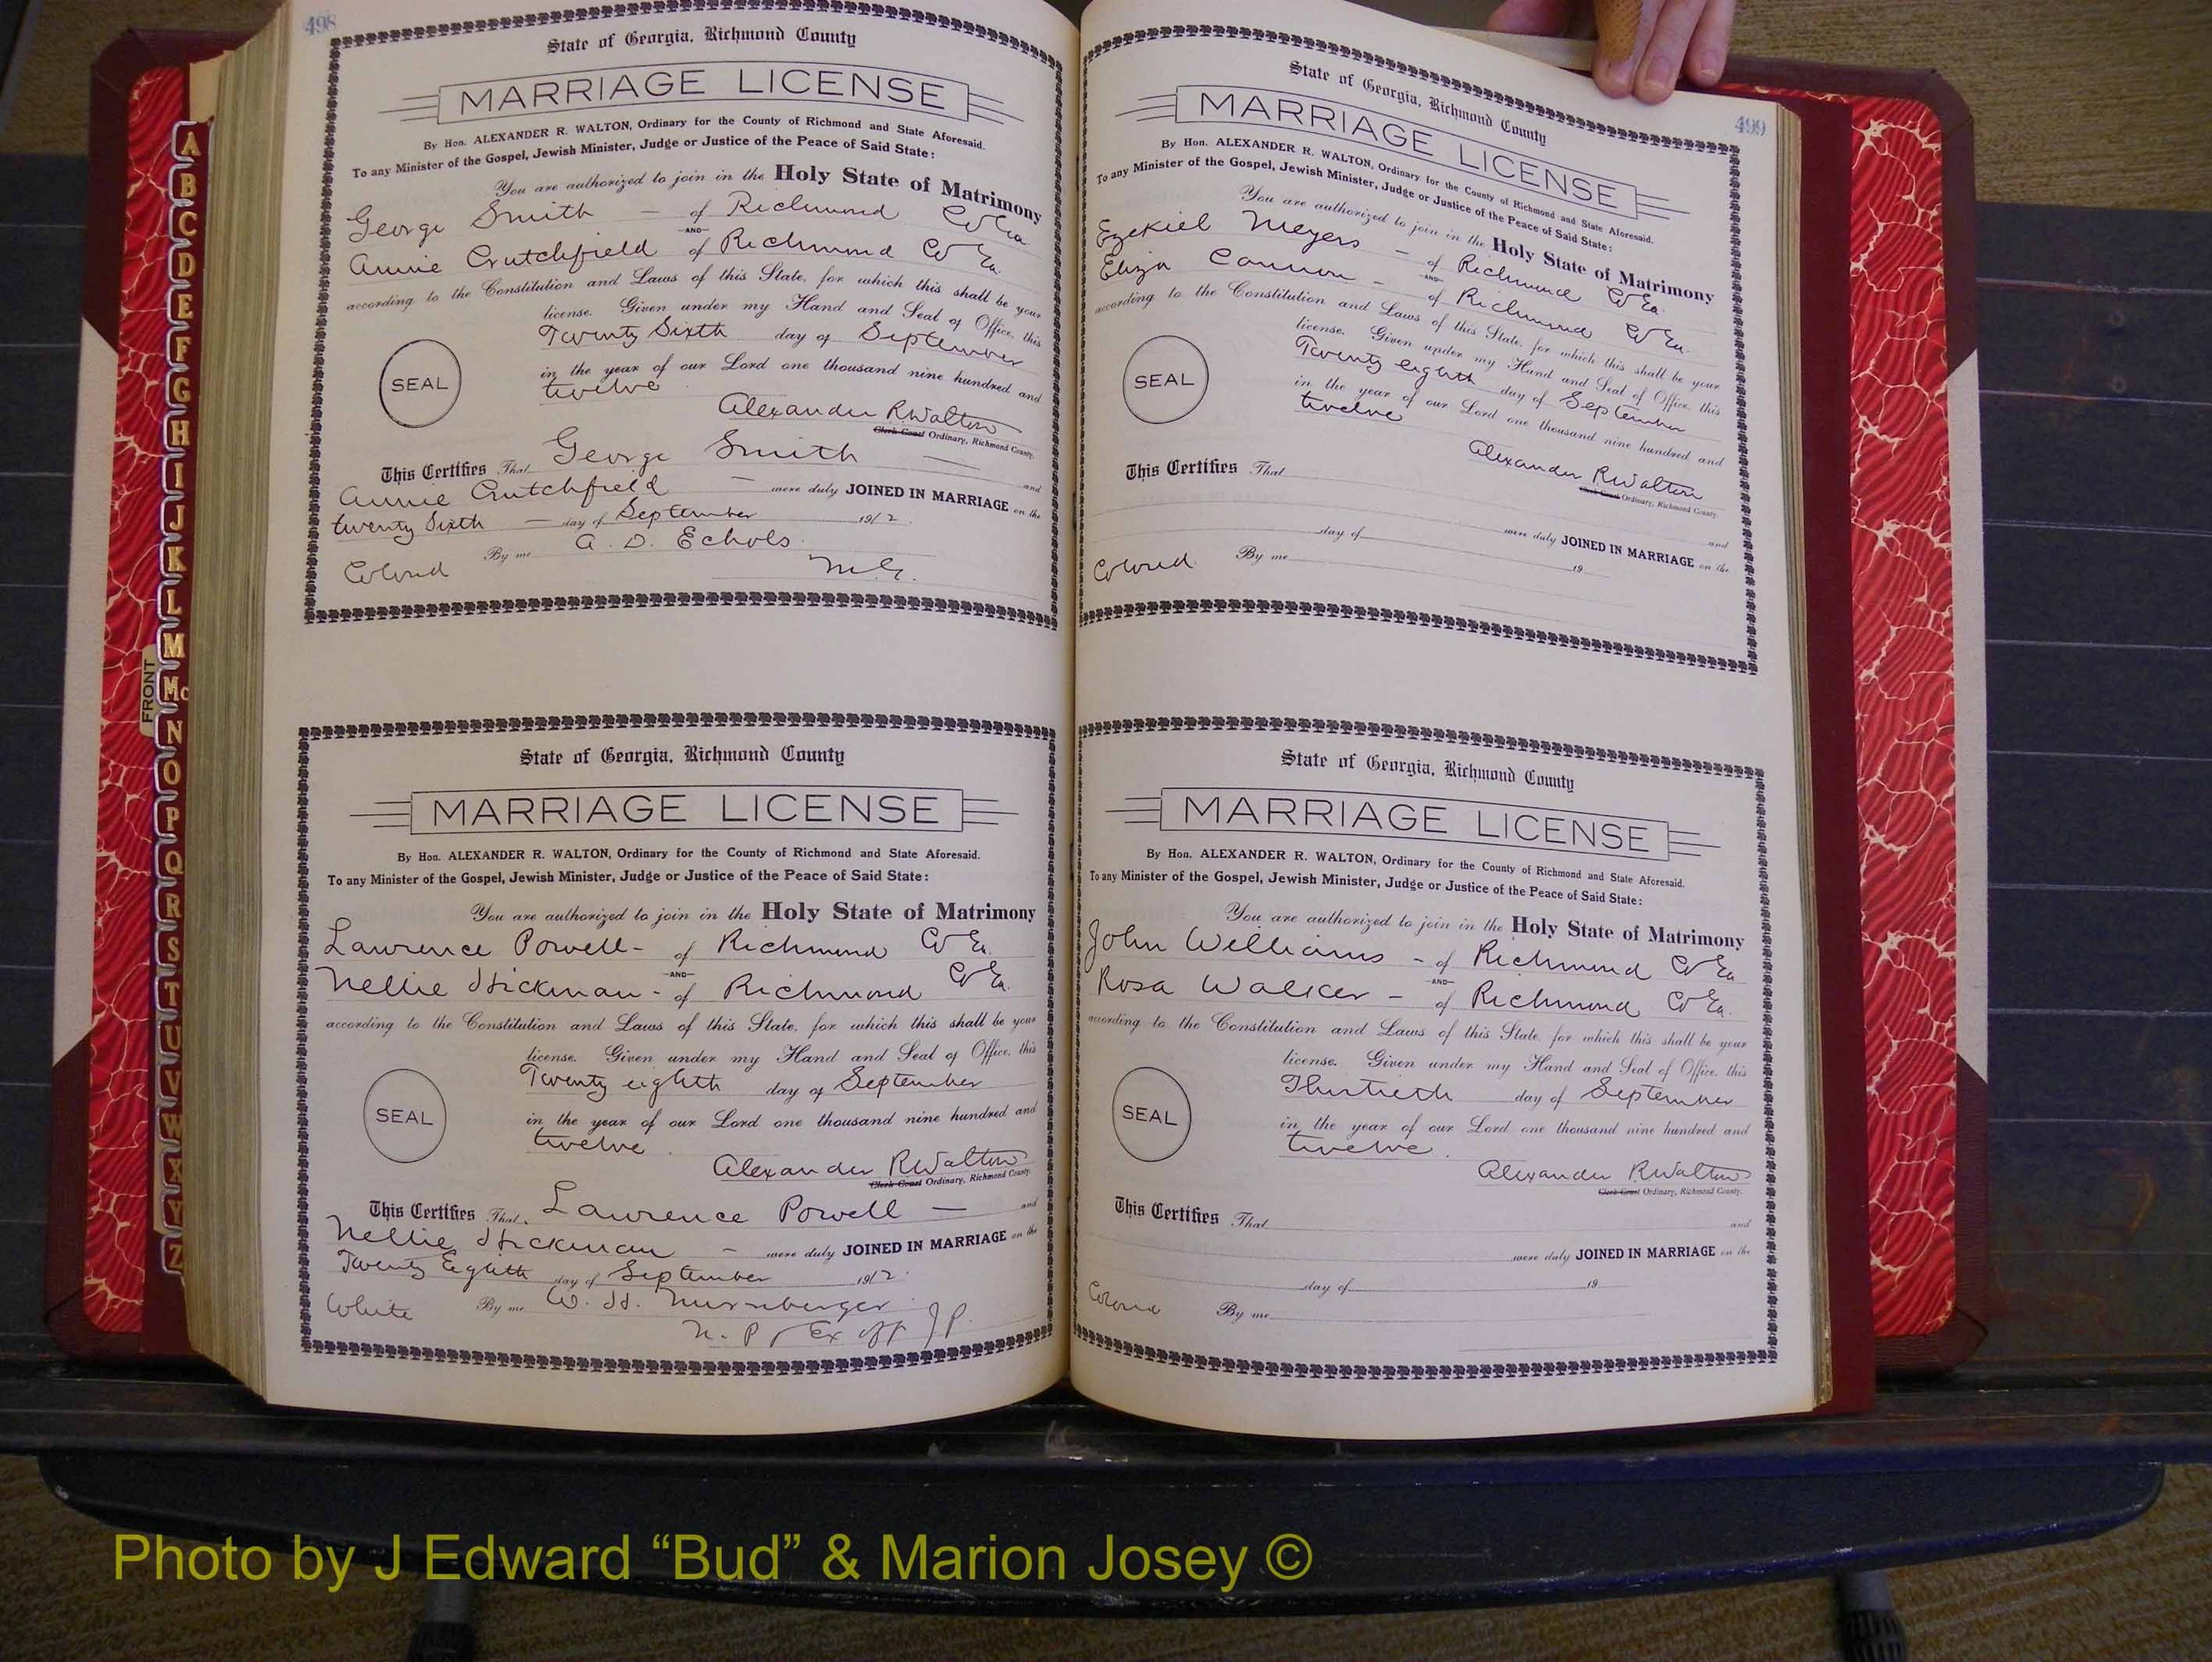 498
State of Georgia, Richmond County
MARRIAGE LICENSE
By Hon. ALEXANDER R. WALTON, Ordinary for the County of Richmond and State Aforesaid.
To any Minister of the Gospel, Jewish Minister, Judge or Justice of the Peace of Said State:
You are authorized to join in the Holy State of Matrimony
George Smith — of Richmond Co Ga
AND
Annie Crutchfield of Richmond Co Ga.
according to the Constitution and Laws of this State, for which this shall be your
license. Given under my Hand and Seal of Office, this
Twenty Sixth day of September
in the year of our Lord one thousand nine hundred and
twelve
SEAL
Alexander R Walton
Clerk Court Ordinary, Richmond County.
This Certifies That George Smith — and
Annie Crutchfield — were duly JOINED IN MARRIAGE on the
twenty Sixth — day of September 1912.
By me A. D. Echols
Colored M.G.
State of Georgia, Richmond County
MARRIAGE LICENSE
By Hon. ALEXANDER R. WALTON, Ordinary for the County of Richmond and State Aforesaid.
To any Minister of the Gospel, Jewish Minister, Judge or Justice of the Peace of Said State:
You are authorized to join in the Holy State of Matrimony
Lawrence Powell - of Richmond Co Ga.
AND
Nellie Hickman - of Richmond Co Ga.
according to the Constitution and Laws of this State, for which this shall be your
license. Given under my Hand and Seal of Office, this
Twenty eighth day of September
in the year of our Lord one thousand nine hundred and
twelve.
SEAL
Alexander R Walton
Clerk Court Ordinary, Richmond County.
This Certifies That Lawrence Powell — and
Nellie Hickman — were duly JOINED IN MARRIAGE on the
Twenty Eighth day of September 1912.
White By me W. H. Nurnberger
N. P & Ex off J P.
499
State of Georgia, Richmond County
MARRIAGE LICENSE
By Hon. ALEXANDER R. WALTON, Ordinary for the County of Richmond and State Aforesaid.
To any Minister of the Gospel, Jewish Minister, Judge or Justice of the Peace of Said State:
You are authorized to join in the Holy State of Matrimony
Ezekiel Meyers — of Richmond Co Ga.
AND
Eliza Cannon — of Richmond Co Ga.
according to the Constitution and Laws of this State, for which this shall be your
license. Given under my Hand and Seal of Office, this
Twenty eighth day of September
in the year of our Lord one thousand nine hundred and
twelve
SEAL
Alexander R Walton
Clerk Court Ordinary, Richmond County.
This Certifies That and
were duly JOINED IN MARRIAGE on the
day of 19
Colored By me
State of Georgia, Richmond County
MARRIAGE LICENSE
By Hon. ALEXANDER R. WALTON, Ordinary for the County of Richmond and State Aforesaid.
To any Minister of the Gospel, Jewish Minister, Judge or Justice of the Peace of Said State:
You are authorized to join in the Holy State of Matrimony
John Williams - of Richmond Co Ga
AND
Rosa Walker - of Richmond Co Ga.
according to the Constitution and Laws of this State, for which this shall be your
license. Given under my Hand and Seal of Office, this
Thirtieth day of September
in the year of our Lord one thousand nine hundred and
twelve.
SEAL
Alexander R Walton
Clerk Court Ordinary, Richmond County.
This Certifies That and
were duly JOINED IN MARRIAGE on the
day of 19
Colored By me
FRONT
A
B
C
D
E
F
G
H
I
J
K
L
M
Mc
N
O
P
Q
R
S
T
U
V
W
X
Y
Z
Photo by J Edward “Bud” & Marion Josey ©